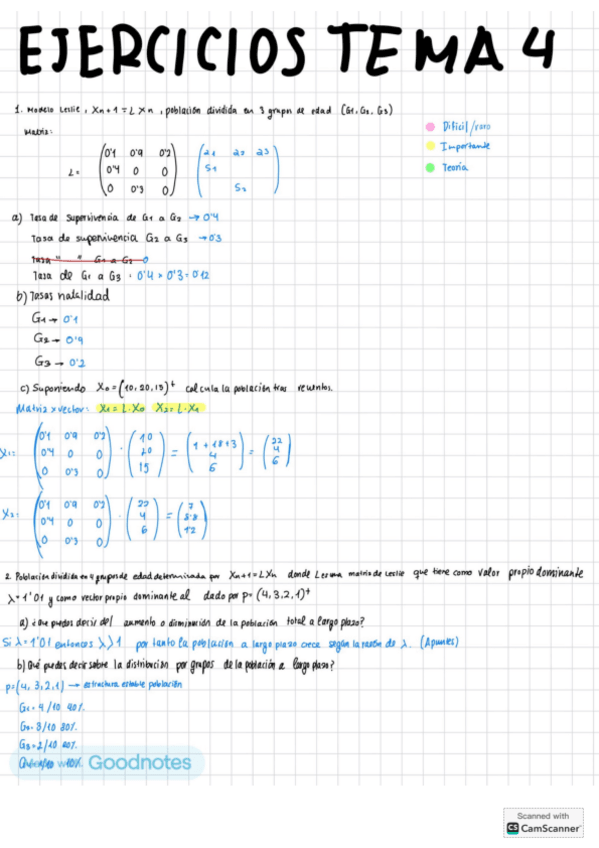 EJERCICIOS TEMA 4
1. Modelo Leslie, Xn+1 = L Xn, población dividida en 3 grupos de edad (G1, G2, G3)
Matriz:
Dificil/raro
Importante
Teoria
L=
0'1 0'9 0'2
0'4 0 0
0 0'3 0
21 22 23
S1
S2
a) Tasa de supervivencia de G1 a G2 → 0'4
Tasa de supervivencia G2 a G3 → 0'3
Tasa " " G1 a G2 0
Tasa de G1 a G3 = 0'4 x 0'3 = 0'12
b) Tasas natalidad
G1 → 0'1
G2 → 0'9
G3 → 0'2
c) Suponiendo X0 = (10, 20, 15)t calcula la población tras recuentos.
Matriz x vector: X1 = L·X0 X2 = L·X1
X1=
0'1 0'9 0'2
0'4 0 0
0 0'3 0
·
10
20
15
=
1 + 18 + 3
4
6
=
22
4
6
X2=
0'1 0'9 0'2
0'4 0 0
0 0'3 0
·
22
4
6
=
7
8.8
1.2
2. Población dividida en 4 grupos de edad determinada por Xn+1 = LXn donde L es una matriz de Leslie que tiene como valor propio dominante
λ = 1'01 y como vector propio dominante al dado por p = (4, 3, 2, 1)t
a) ¿Que puedes decir del aumento o disminución de la población total a largo plazo?
Si λ = 1'01 entonces λ > 1 por tanto la población a largo plazo crece según la razón de λ. (Apuntes)
b) Qué puedes decir sobre la distribución por grupos de la población a largo plazo?
p = (4, 3, 2, 1) → estructura estable población
G1 = 4/10 40%.
G2 = 3/10 30%.
G3 = 2/10 20%.
10%.
Goodnotes
Scanned with
CS CamScanner